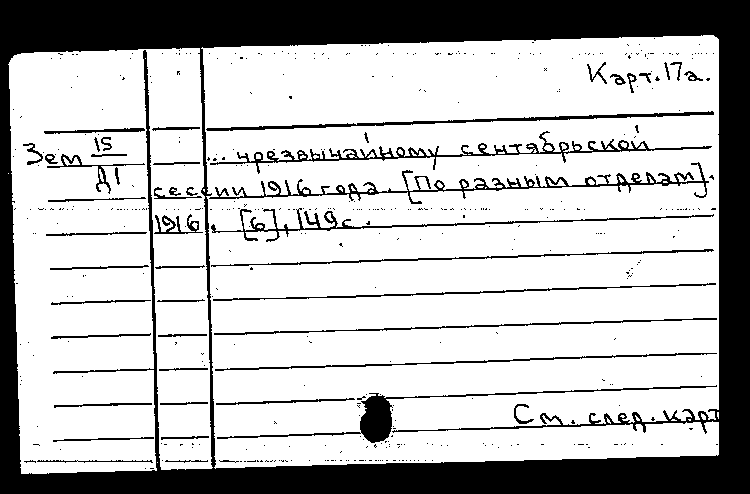 Карт. 17а.
Зем 15/Д1
... чрезвычайному сентябрьской
сессии 1916 года. [По разным отделам].
1916. [6], 149 с.
См. след. карт